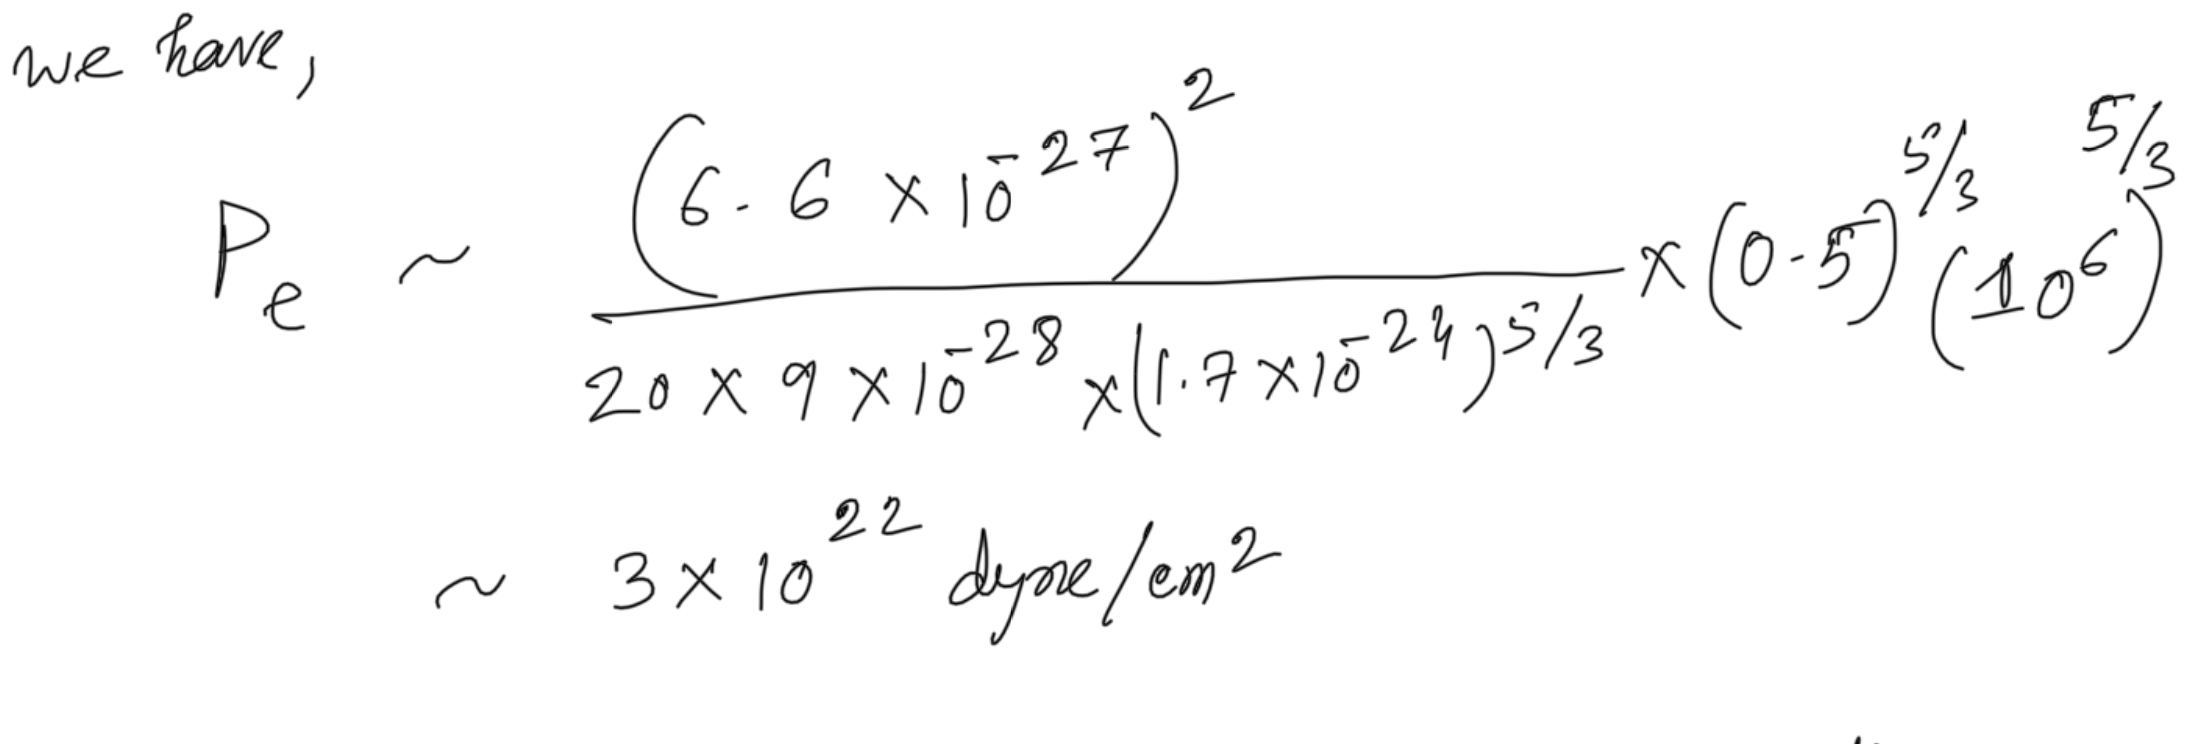 we have,
P_e ~ (6.6 × 10^-27)^2 / (20 × 9 × 10^-28 × (1.7 × 10^-24)^5/3) × (0.5)^5/3 (10^6)^5/3
~ 3 × 10^22 dyne/cm^2